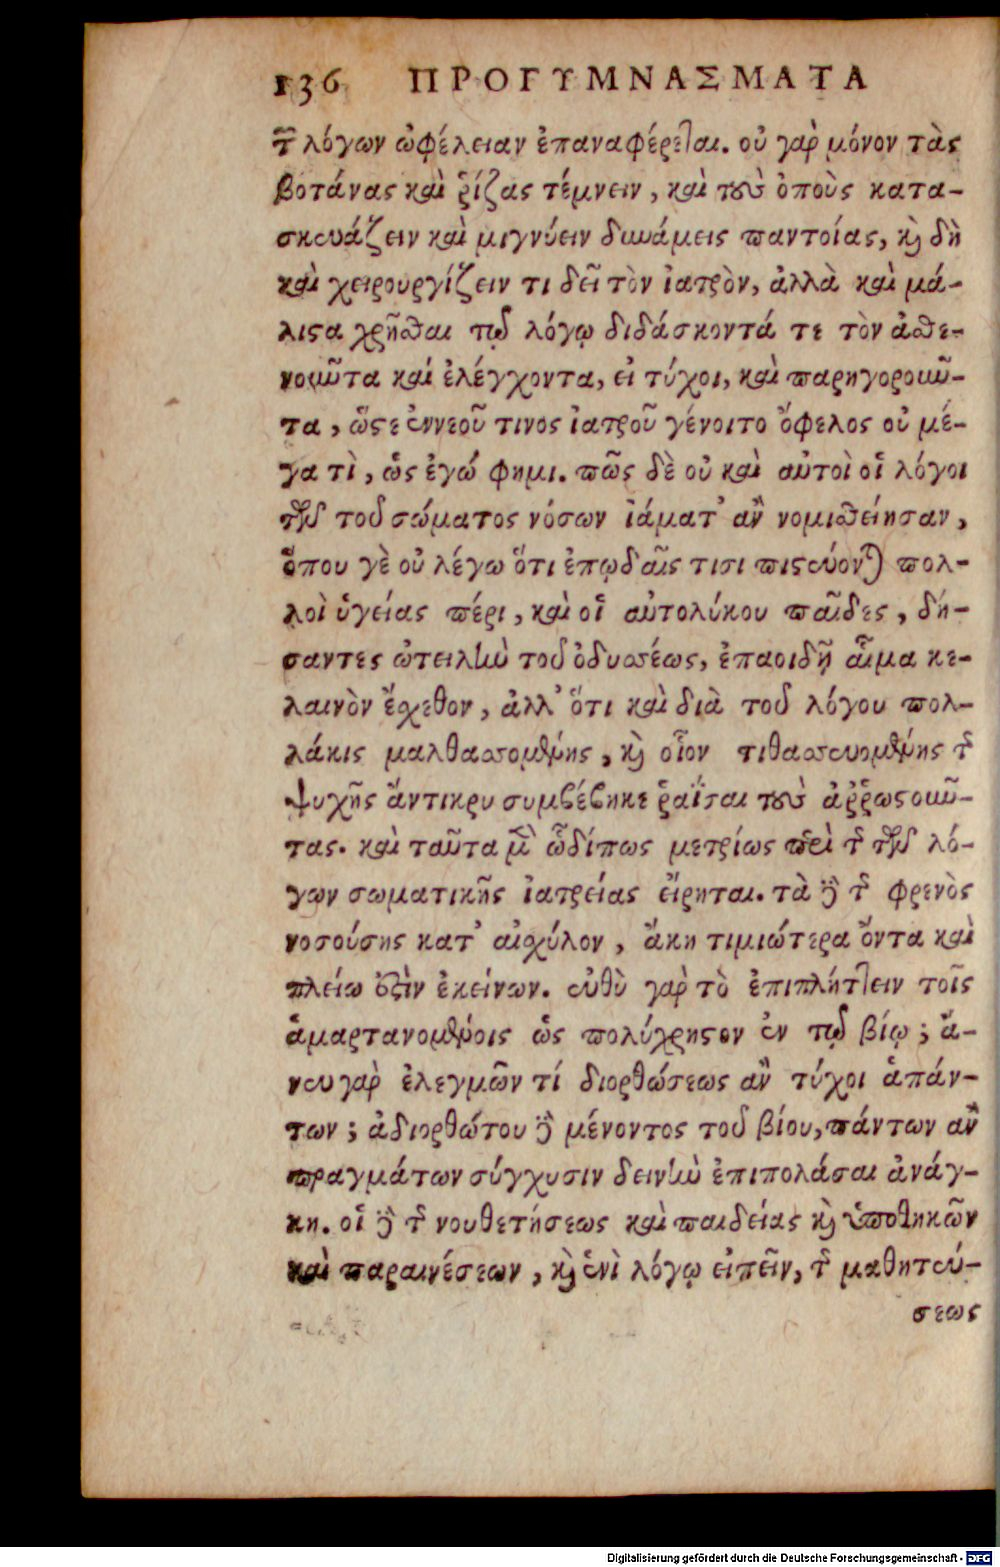 136 ΠΡΟΓΥΜΝΑΣΜΑΤΑ
τῶν λόγων ὠφέλειαν ἐπαναφέρεται. οὐ γὰρ μόνον τὰς
βοτάνας καὶ ῥίζας τέμνειν, καὶ τοὺς ὀποὺς κατα-
σκευάζειν καὶ μιγνύειν δυνάμεις παντοίας, καὶ δὴ
καὶ χειρουργίζειν τι δεῖ τὸν ἰατρὸν, ἀλλὰ καὶ μά-
λιστα χρῆσθαι τῷ λόγῳ διδάσκοντά τε τὸν ἀσθε-
νοῦντα καί ἐλέγχοντα, εἰ τύχοι, καὶ παρηγοροῦν-
τα, ὥστε ἐννεοῦ τινος ἰατροῦ γένοιτο ὄφελος οὐ μέ-
γα τὶ, ὡς ἐγώ φημι. πῶς δὲ οὐ καὶ αὐτοὶ οἱ λόγοι
τῶν τοῦ σώματος νόσων ἰάματ' ἂν νομισθείησαν,
ὅπου γὲ οὐ λέγω ὅτι ἐπῳδαῖς τισι πιστεύονται πολ-
λοὶ ὑγείας πέρι, καὶ οἱ αὐτολύκου παῖδες, δή-
σαντες ὠτειλὴν τοῦ ὀδυσσέως, ἐπαοιδῇ αἷμα κε-
λαινὸν ἔσχεθον, ἀλλ' ὅτι καὶ διὰ τοῦ λόγου πολ-
λάκις μαλθασσομένης, καὶ οἷον τιθασσευομένης τῆς
ψυχῆς ἄντικρυ συμβέβηκε ῥαΐσαι τοὺς ἀῤῥωστοῦν-
τας. καὶ ταῦτα μὲν ὧδίπως μετρίως περὶ τῆς τῶν λό-
γων σωματικῆς ἰατρείας εἴρηται. τὰ δὲ τῆς φρενὸς
νοσούσης κατ' αἰσχύλον, ἄκη τιμιώτερα ὄντα καὶ
πλείω ἐστὶν ἐκείνων. εὐθὺ γὰρ τὸ ἐπιπλήττειν τοῖς
ἁμαρτανομένοις ὡς πολύχρηστον ἐν τῷ βίῳ; ἄ-
νευ γὰρ ἐλεγμῶν τί διορθώσεως ἂν τύχοι ἁπάν-
των; ἀδιορθώτου δὲ μένοντος τοῦ βίου, πάντων ἂν
πραγμάτων σύγχυσιν δεινὴν ἐπιπολάσαι ἀνάγ-
κη. οἱ δὲ τῆς νουθετήσεως καὶ παιδείας καὶ ὑποθηκῶν
καὶ παραινέσεων, καὶ ἑνὶ λόγῳ εἰπεῖν, τῆς μαθητεύ-
σεως
Digitalisierung gefördert durch die Deutsche Forschungsgemeinschaft - DFG